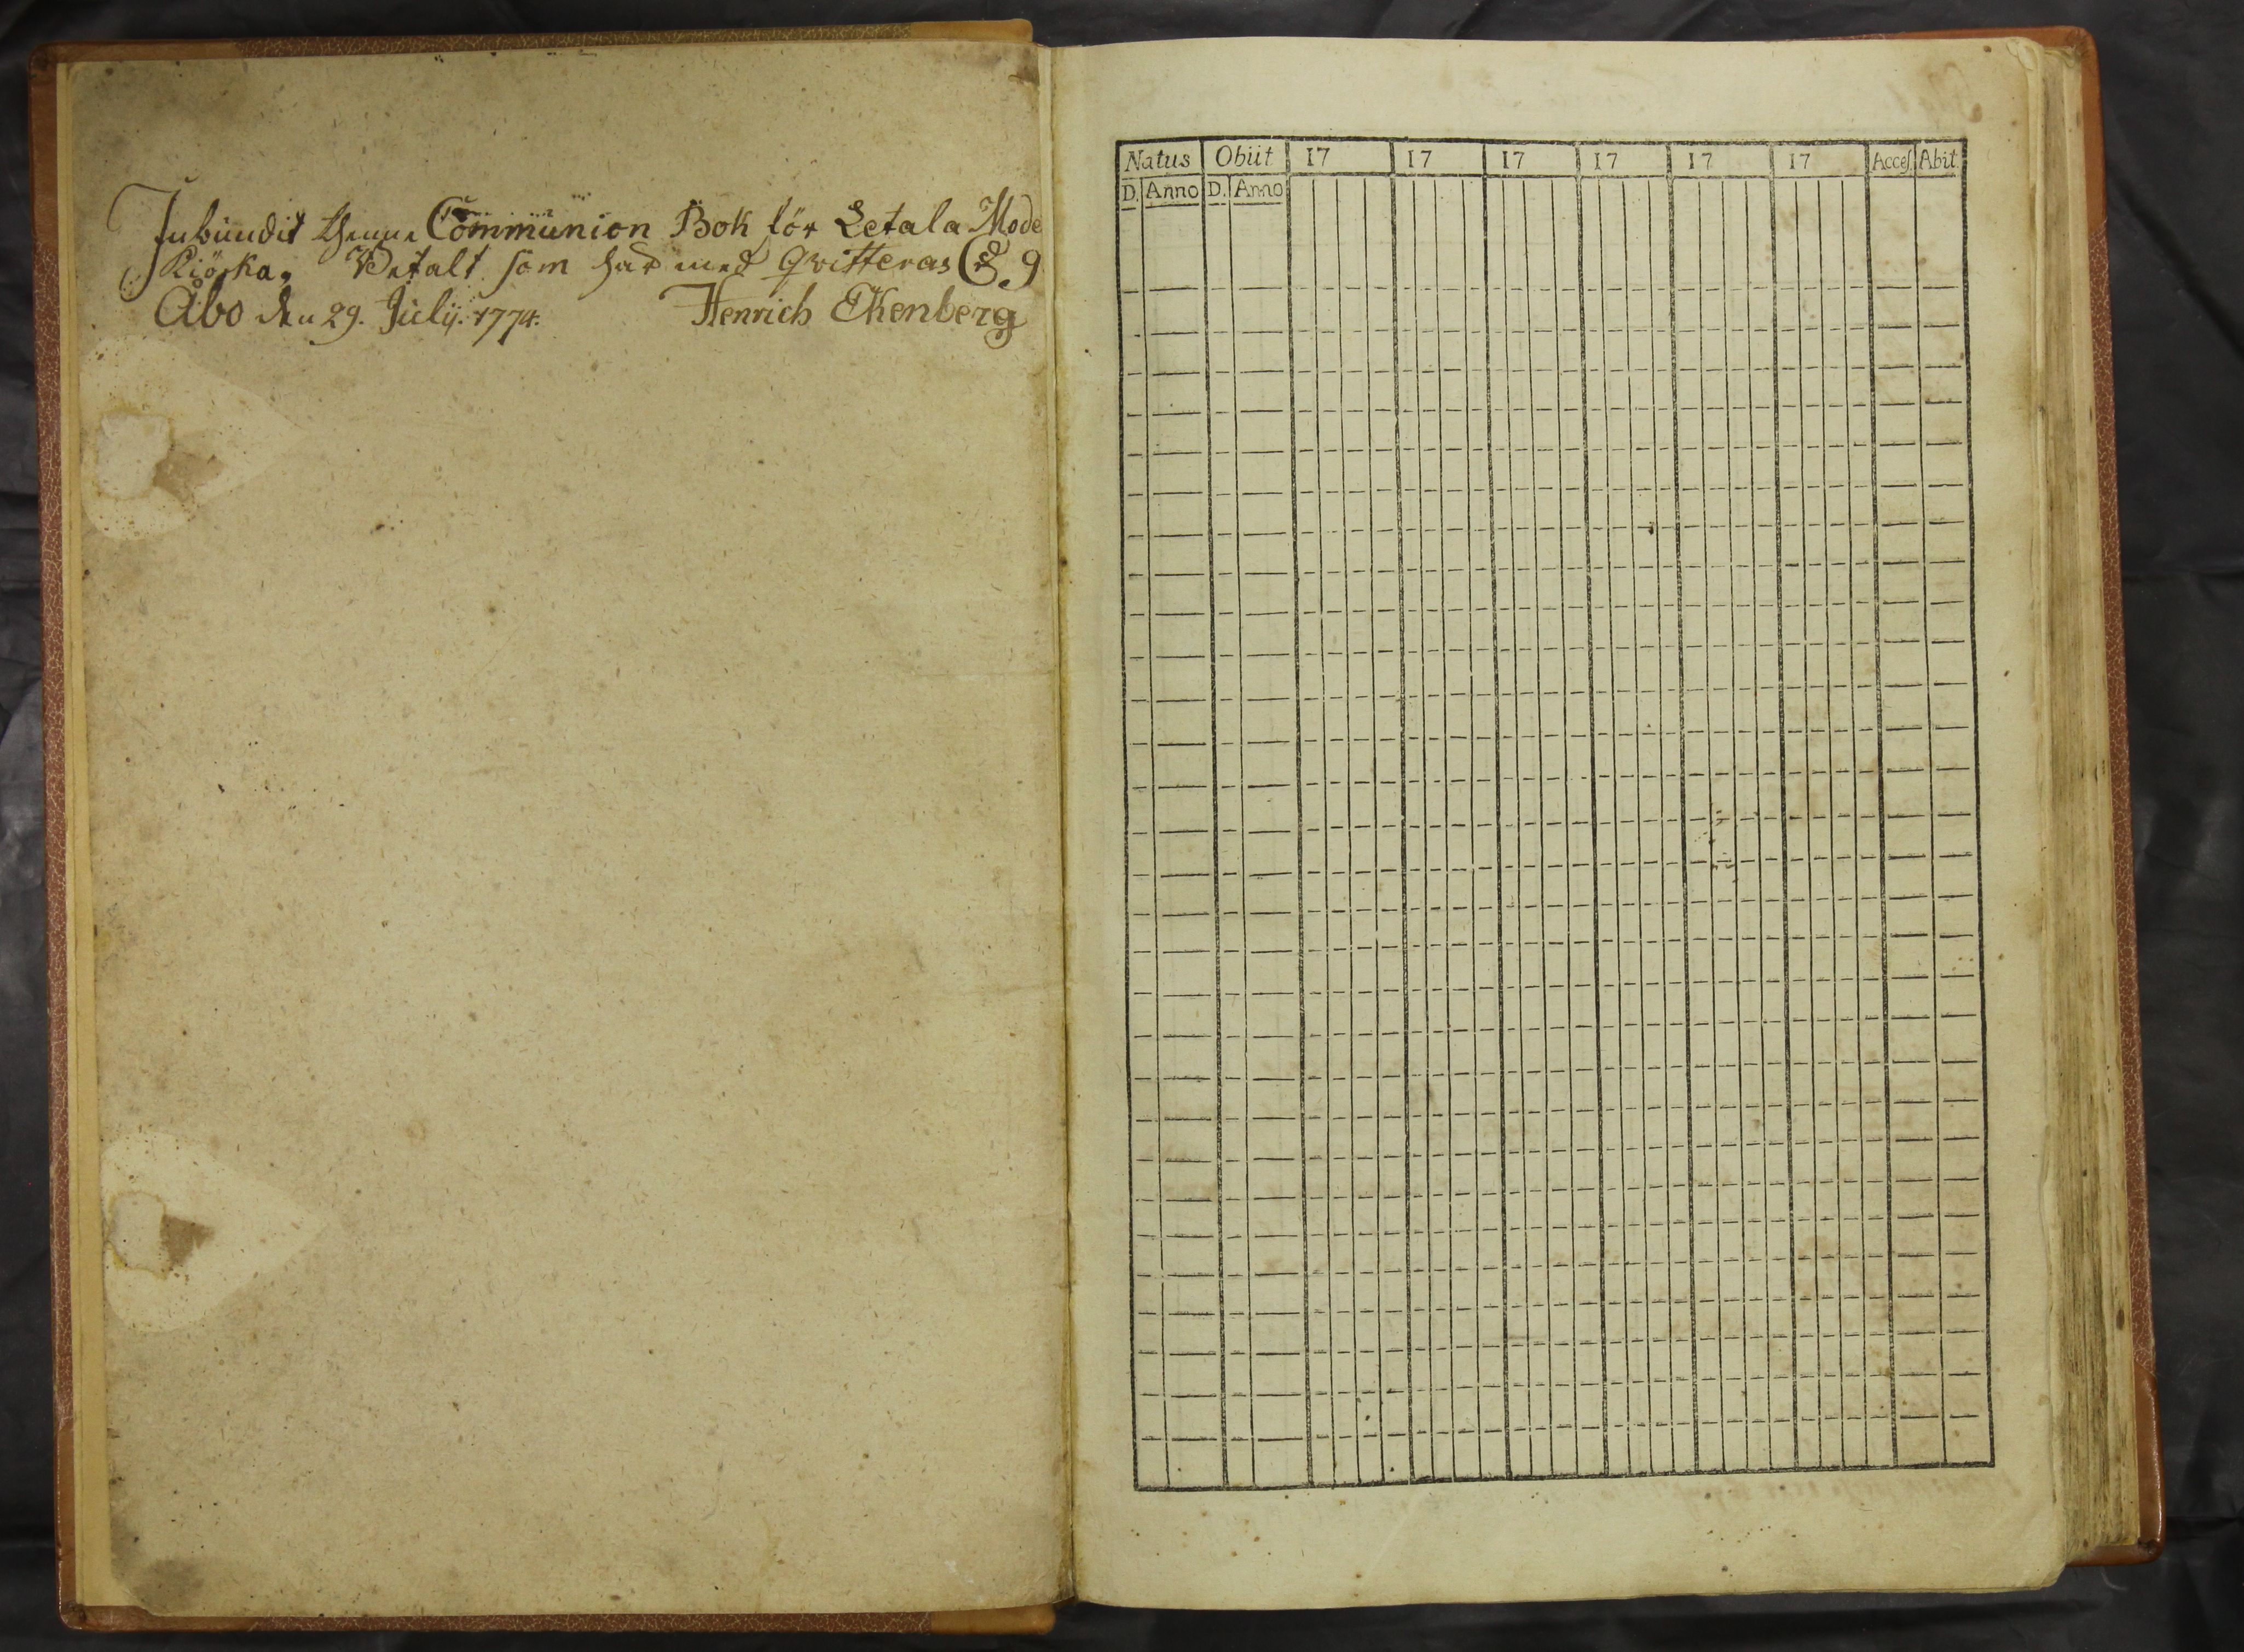 Inbundit thenne Communion Bok för Letala Mode
Kiörka, Betalt som här med qvitteras
Åbo den 29. Julij. 1774. Henrich Ekenberg
Natus Obiit 17 17 17 17 17 17 Acces. Abit.
D. Anno D. Anno